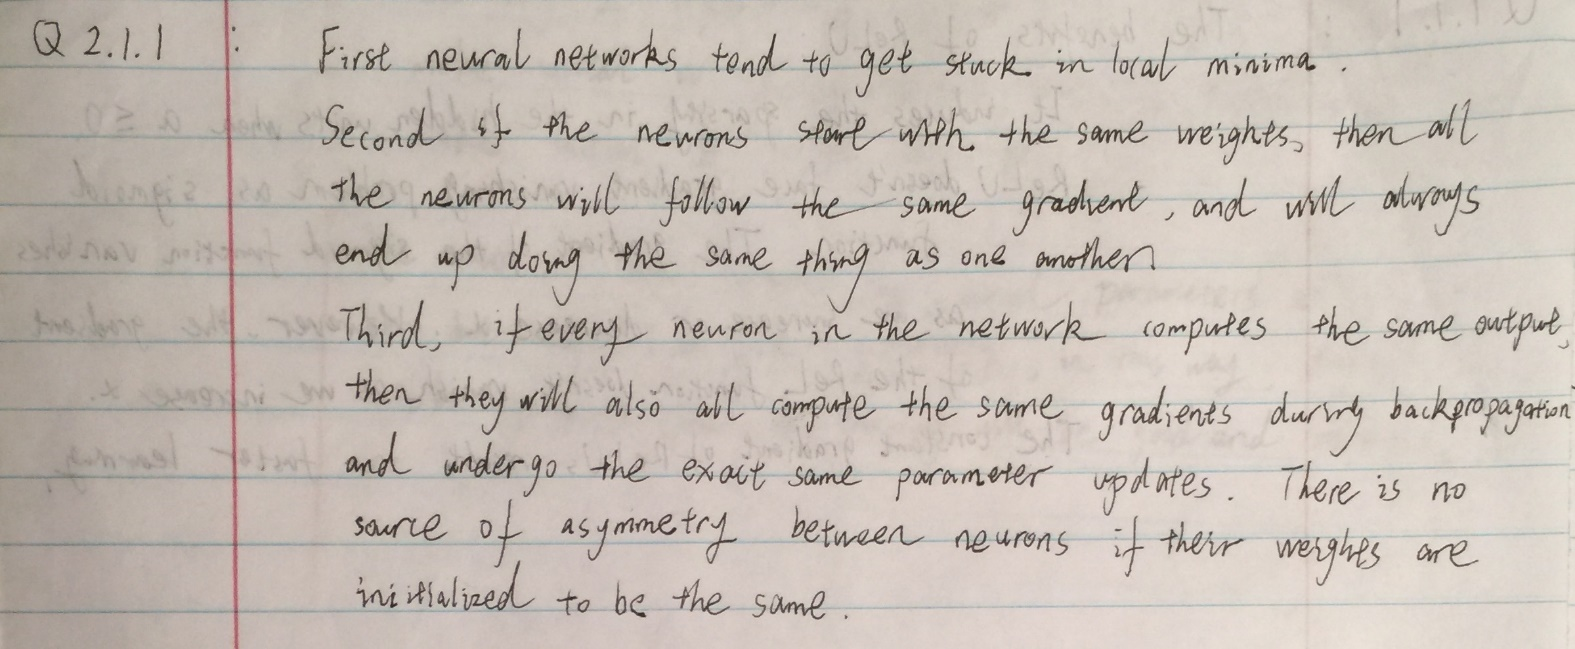 Q 2.1.1 : First neural networks tend to get stuck in local minima.
Second if the neurons start with the same weights, then all
the neurons will follow the same gradient, and will always
end up doing the same thing as one another.
Third, if every neuron in the network computes the same output,
then they will also all compute the same gradients during backpropagation
and undergo the exact same parameter updates. There is no
source of asymmetry between neurons if their weights are
initialized to be the same.